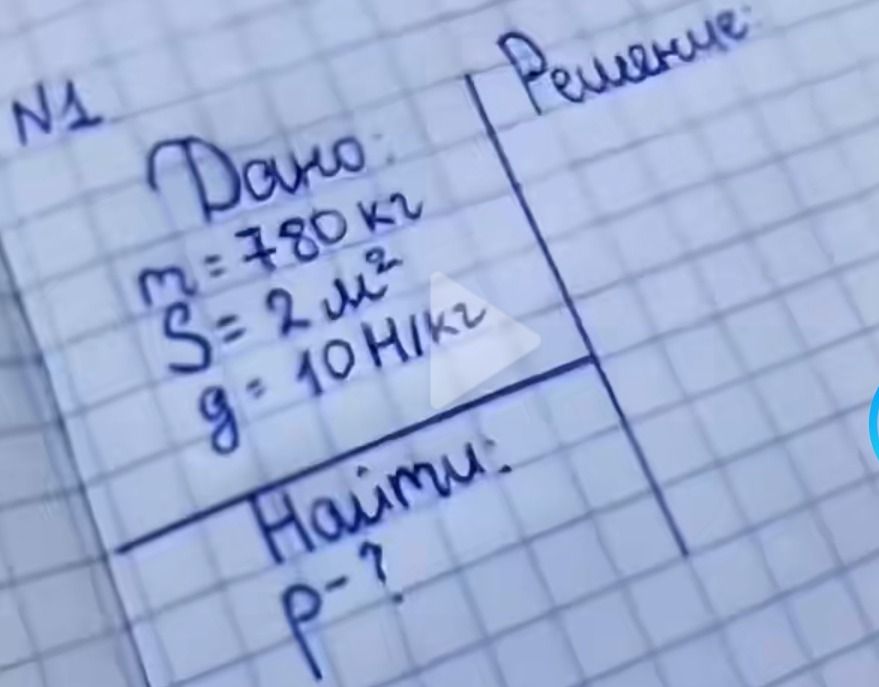 N1
Дано:
m = 780 кг
S = 2 м²
g = 10 Н/кг
Найти:
p - ?
Решение: